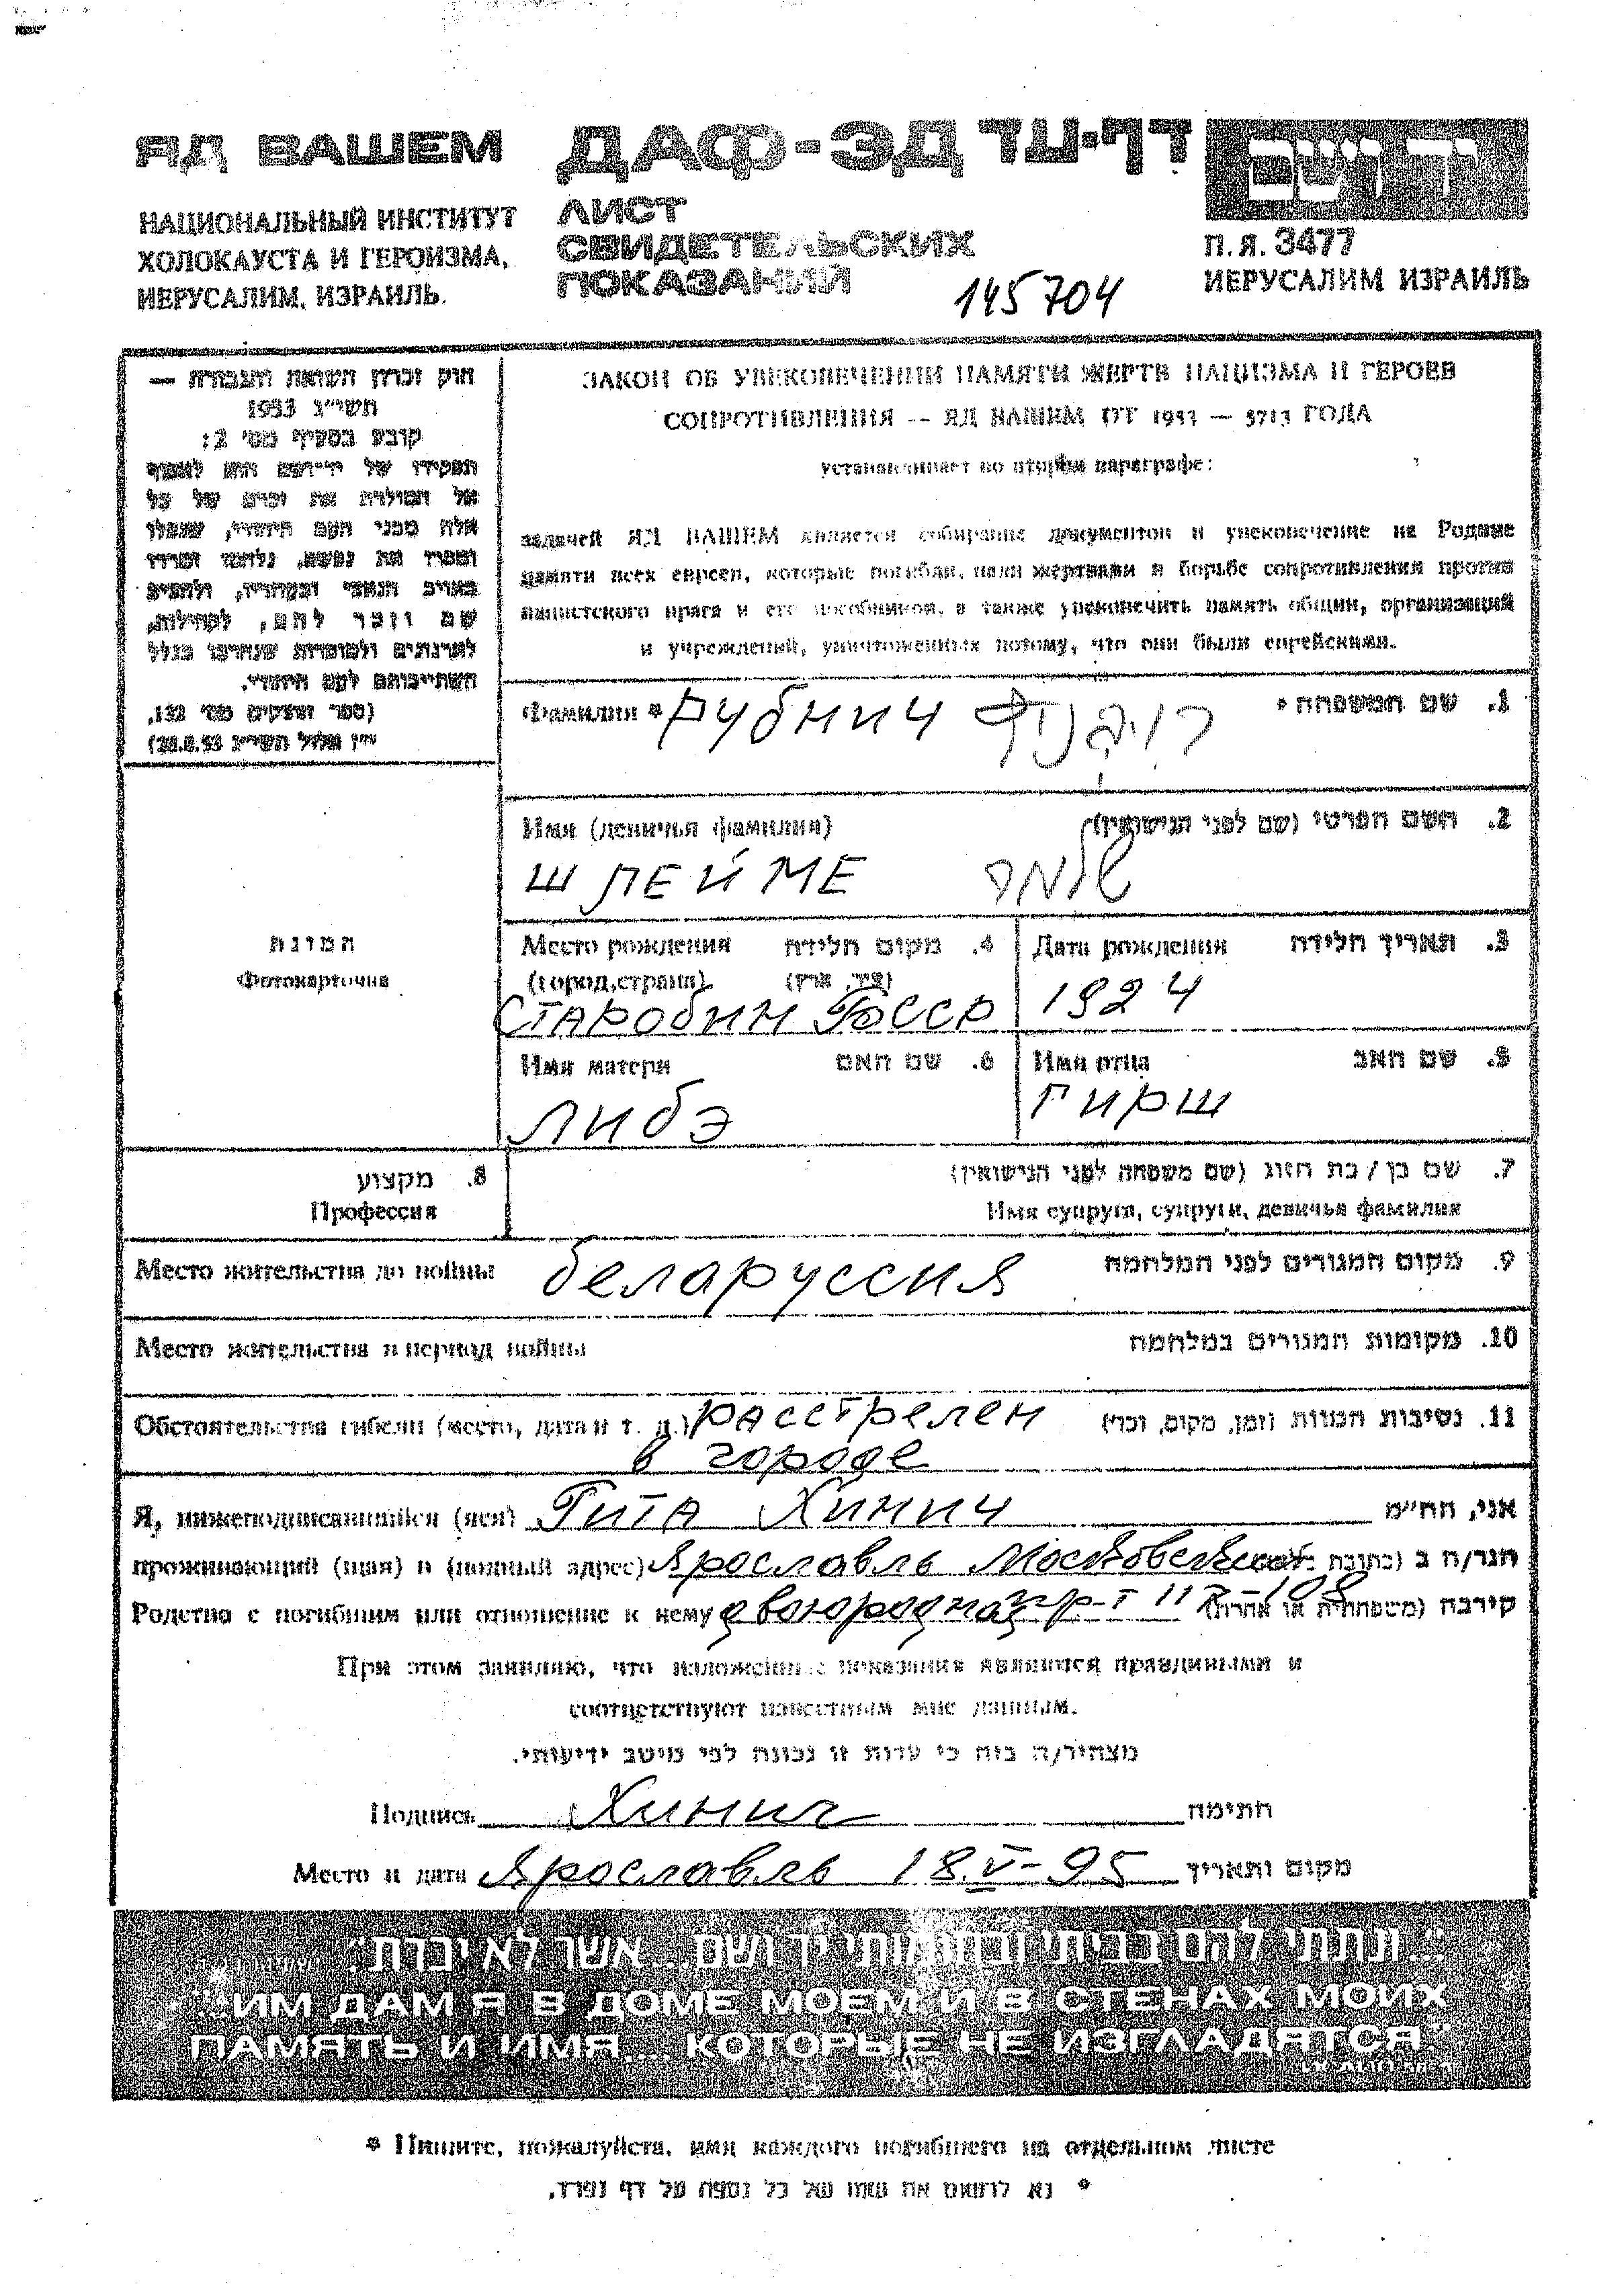 ЯД ВАШЕМ
ДАФ-ЭД דף-עד
יד ושם
НАЦИОНАЛЬНЫЙ ИНСТИТУТ
ХОЛОКАУСТА И ГЕРОИЗМА,
ИЕРУСАЛИМ, ИЗРАИЛЬ.
ЛИСТ
СВИДЕТЕЛЬСКИХ
ПОКАЗАНИЙ
145704
П.Я. 3477
ИЕРУСАЛИМ ИЗРАИЛЬ
חוק זכרון השואה והגבורה —
תשי״ג 1953
קובע בסעיף מס׳ 2:
תפקידו של יד-ושם הוא לאסוף
אל המולדת את זכרם של כל
אלה מבני העם היהודי, שנפלו
ומסרו את נפשם, נלחמו ומרדו
באויב הנאצי ובעוזריו, ולהציב
שם וזכר להם, לקהילות,
לארגונים ולמוסדות שנחרבו בגלל
השתייכותם לעם היהודי.
(ספר החוקים מס׳ 132,
י״ז אלול תשי״ג 28.8.53)
ЗАКОН ОБ УВЕКОВЕЧЕНИИ ПАМЯТИ ЖЕРТВ НАЦИЗМА И ГЕРОЕВ
СОПРОТИВЛЕНИЯ -- ЯД ВАШЕМ ОТ 1953 — 5713 ГОДА
устанавливает во втором параграфе:
задачей ЯД ВАШЕМ является собирание документов и увековечение на Родине
памяти всех евреев, которые погибли, пали жертвами в борьбе сопротивления против
нацистского врага и его пособников, а также увековечить память общин, организаций
и учреждений, уничтоженных потому, что они были еврейскими.
Фамилия * Рубнич רובניץ 1. שם המשפחה *
Имя (девичья фамилия) 2. השם הפרטי (שם לפני הנישואין)
ШЛЕЙМЕ שלמה
Место рождения 4. מקום הלידה
(город,страна) (עיר, ארץ)
Старобин БССР
Дата рождения 3. תאריך הלידה
1924
Имя матери 6. שם האם
Либэ
Имя отца 5. שם האב
Гирш
התמונה
Фотокарточка
8. מקצוע
Профессия
7. שם בן / בת הזוג (שם משפחה לפני הנישואין)
Имя супруга, супруги, девичья фамилия
Место жительства до войны беларуссия 9. מקום המגורים לפני המלחמה
Место жительства в период войны 10. מקומות המגורים במלחמה
Обстоятельства гибели (место, дата и т. д.) расстрелен 11. נסיבות המוות (זמן, מקום, וכו׳)
в городе
Я, нижеподписавшийся (аяся) Гита Хинич אני, הח״מ
проживающий (щая) в (полный адрес) Ярославль Московский הגר/ה ב (כתובת
Родство с погибшим или отношение к нему двогородная пр-т 117-108 קירבה (משפחתית או אחרת)
При этом заявляю, что изложенные показания являются правдивыми и
соответствуют известным мне данным.
מצהיר/ה בזה כי עדות זו נכונה לפי מיטב ידיעותי.
Подпись Хинич חתימה
Место и дата Ярославль 18.V-95 מקום ותאריך
״...ונתתי להם בביתי ובחומותי יד ושם... אשר לא יכרת״
"...ИМ ДАМ Я В ДОМЕ МОЕМ И В СТЕНАХ МОИХ
ПАМЯТЬ И ИМЯ.... КОТОРЫЕ НЕ ИЗГЛАДЯТСЯ."
* Пишите, пожалуйста, имя каждого погибшего на отдельном листе
* נא לרשום את שמו של כל נספה על דף נפרד.